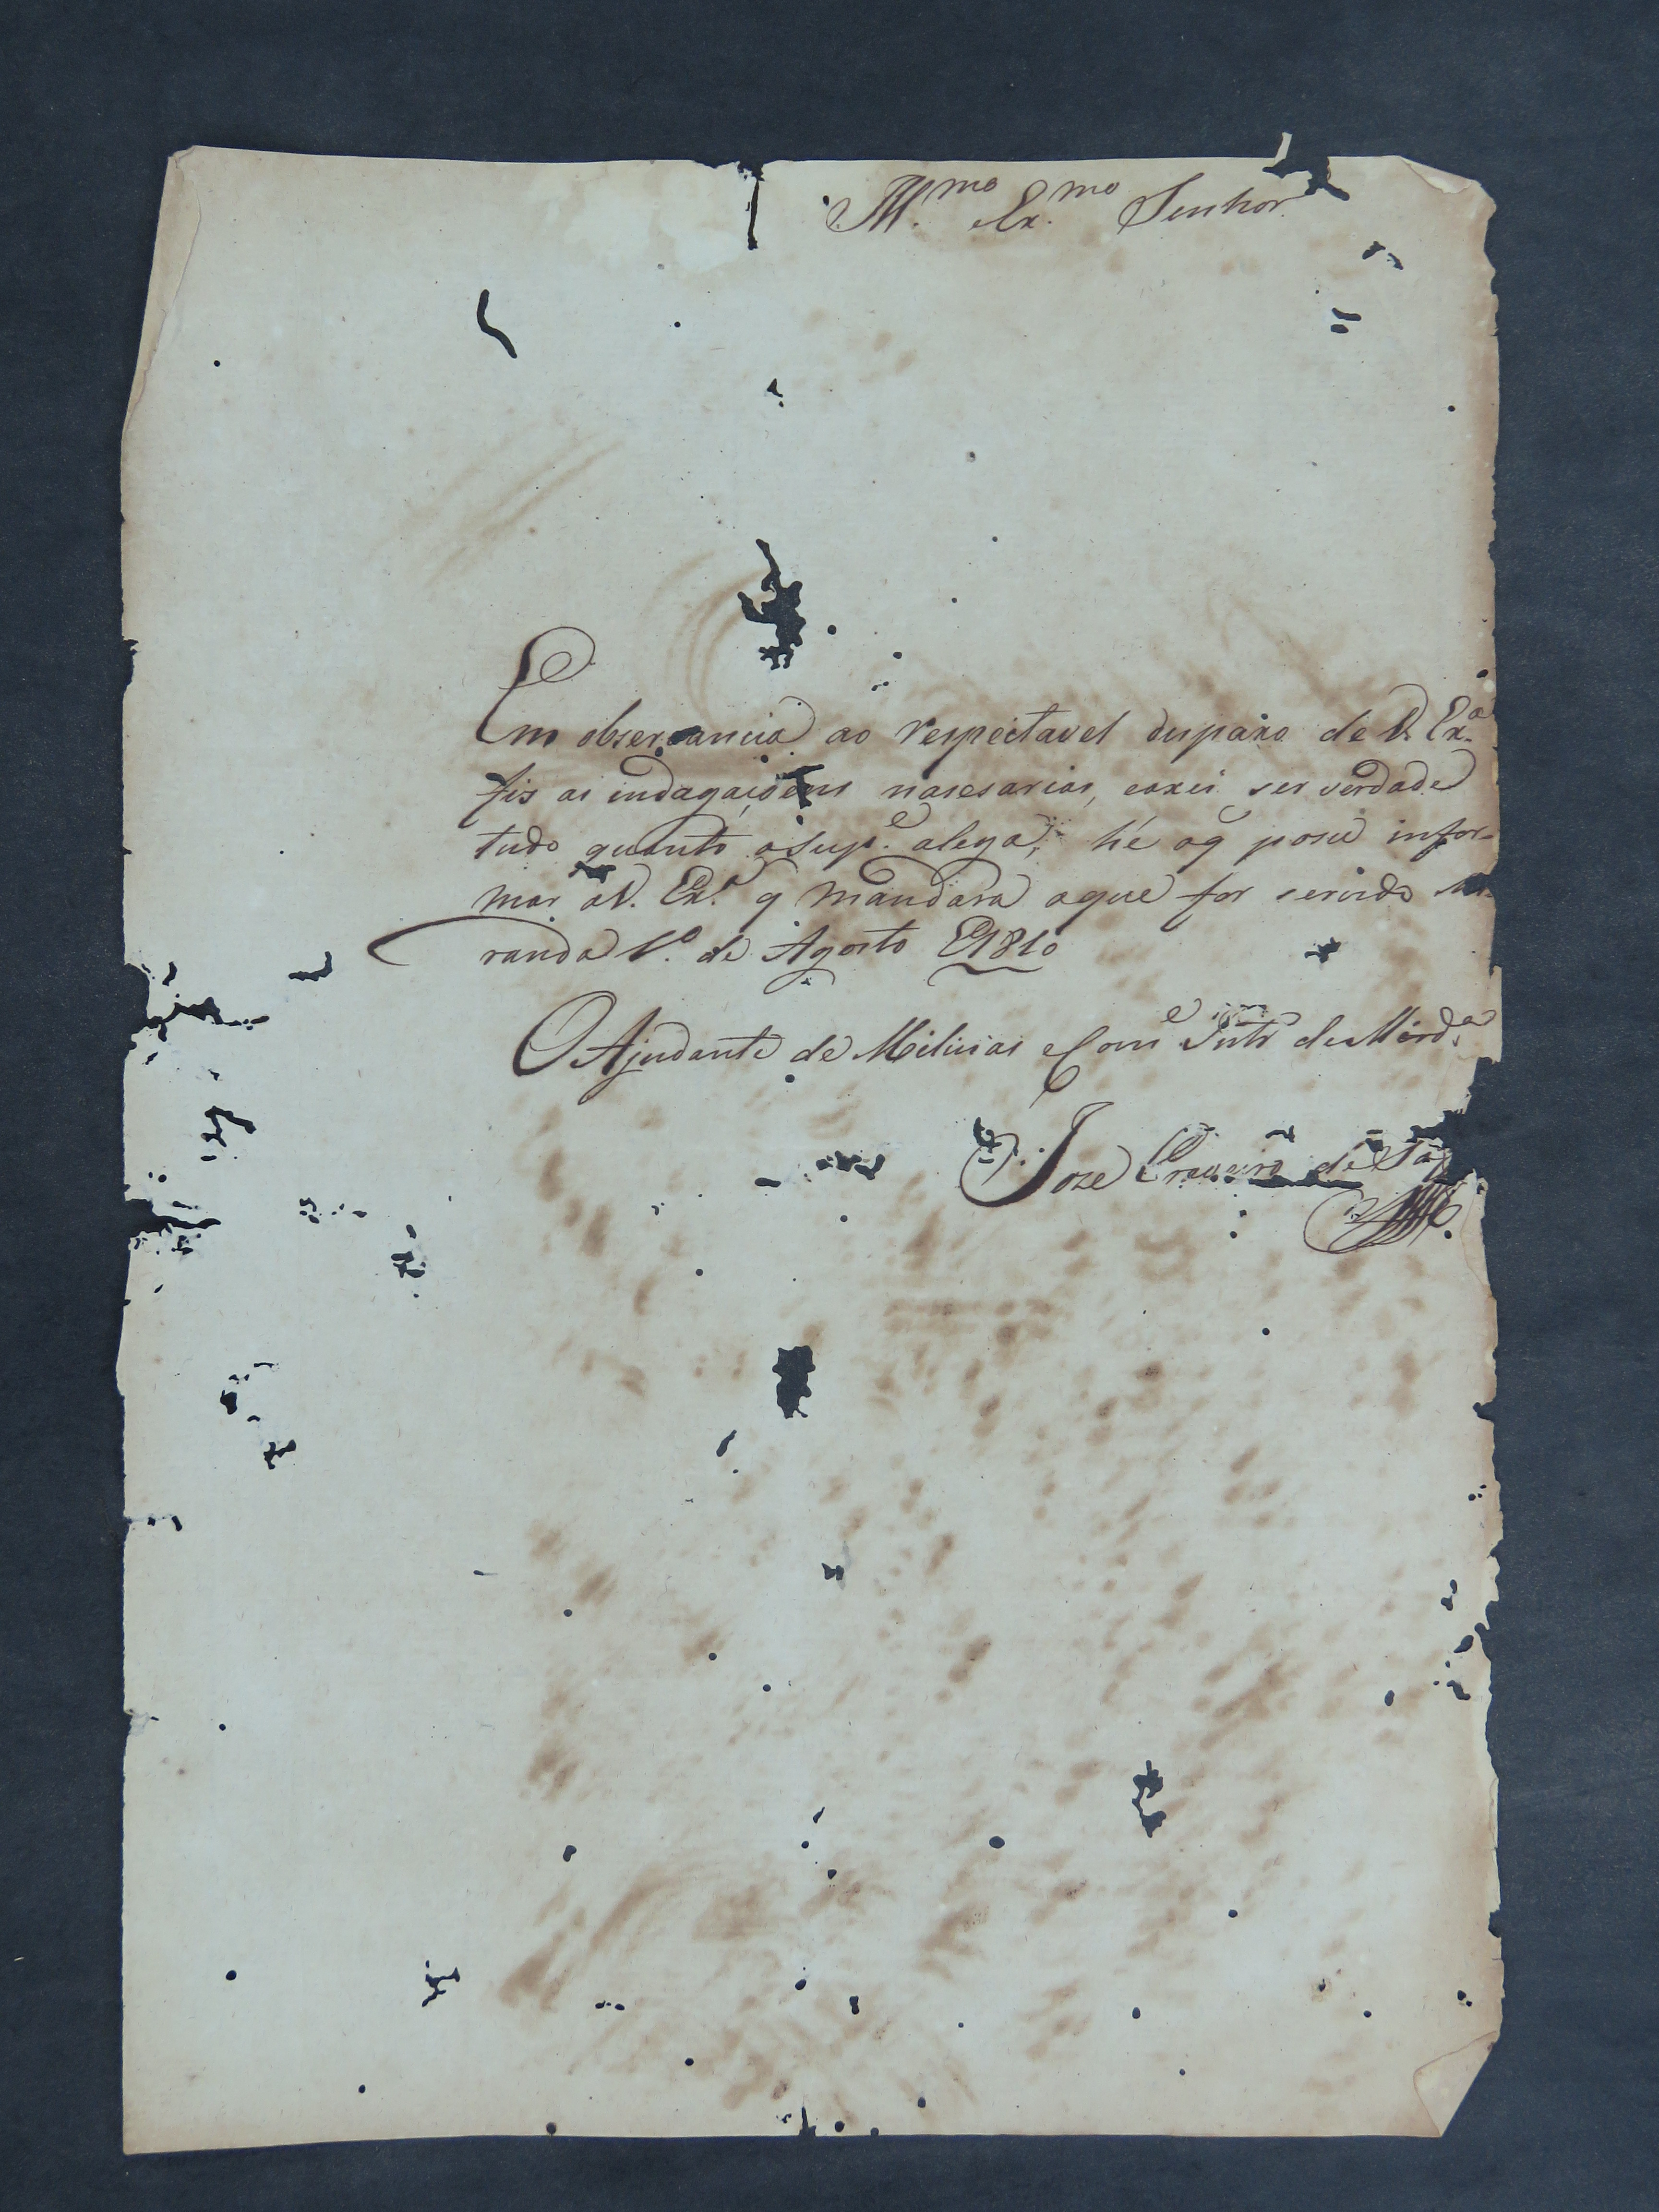 Ill.mo Ex.mo Senhor
Em observancia ao respeitavel despaxo de V. Ex.a
fis as indagaçoens nasesarias, eaxei ser verdade
tudo quanto oSup.e alega, hé oq̃ posso infor-
mar aV. Ex.a q mandara oque for servido Mi-
randa 1.o de Agosto D1810
O Ajudante de Milicias eCom.e Intr.o de Mird.a
Joze Craveiro de Sá